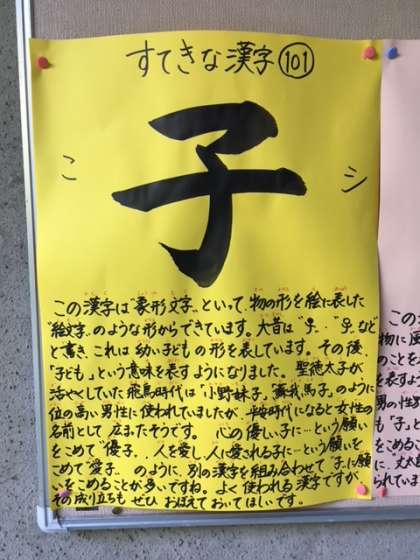 すてきな漢字 101
こ 子 シ
この漢字は"象形文字"といって、物の形を絵に表した
"絵文字"のような形からできています。大昔は
など
と書き、これは幼い子どもの形を表しています。その後、
「子ども」という意味を表すようになりました。聖徳太子が
活やくしていた飛鳥時代は「小野妹子」「蘇我馬子」のように
位の高い男性に使われていましたが、平安時代になると女性の
名前として広まったそうです。心の優しい子に…という願い
をこめて"優子"、人を愛し、人に愛される子に…という願いを
こめて"愛子"のように、別の漢字を組み合わせて"子"に願
いをこめることが多いですね。よく使われる漢字ですが、
その成り立ちもぜひおぼえておいてほしいです。
この
物に
のことを
を表すよう
男の性別
も「子」と
をこめるこ
に、丈
られていま